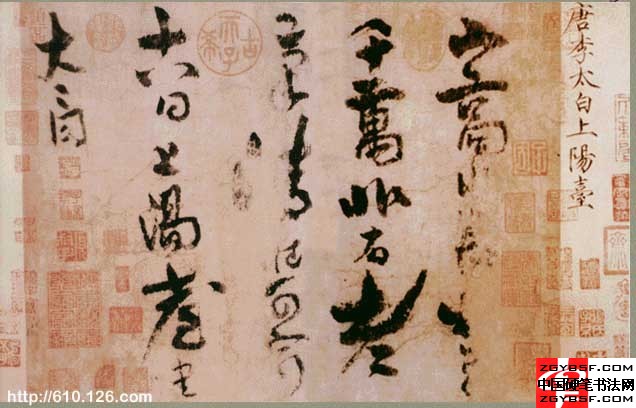 唐李太白上陽臺
山高水長物象
千萬非有老
筆清壯可窮
十八日上陽臺書
太白
古希天子
http://610.126.com
ZGYBSF.COM
中国硬笔书法网
ZGYBSF.COM